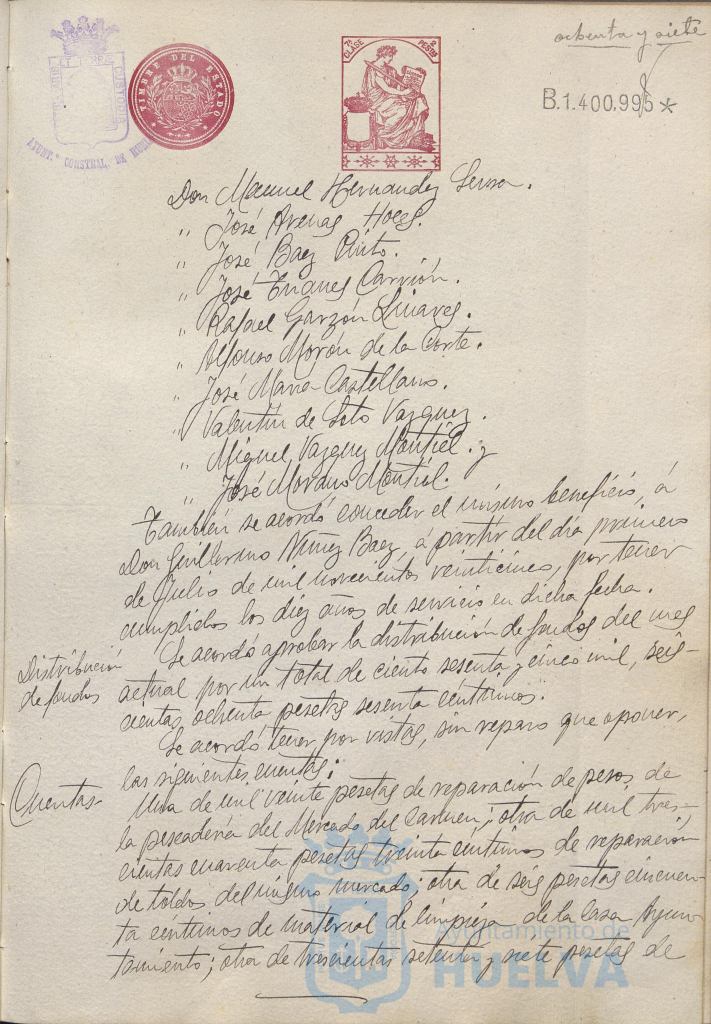 ochenta y siete
B.1.400.995*
TIMBRE DEL ESTADO
7ª CLASE
2 PESTAS
AYUNT.º CONSTNAL. DE HUELVA
Don Manuel Hernandez
" José Arenas
" José Baez Pinto.
" José Carrión.
" Rafael Garzón Linares.
" Alfonso Morón de la Corte.
" José Maria Castellano.
" Valentin de Soto Vazquez.
" Miguel Vazquez Montiel. y
" José Morano Montiel.
También se acordó conceder el mismo beneficio, á
Don Guillermo Nuñez Baez, á partir del dia primero
de Julio de mil novecientos veinticinco, por tener
cumplidos los diez años de servicio en dicha fecha.
Distribución
de fondos
Se acordó aprobar la distribución de fondos del mes
actual por un total de ciento sesenta y cinco mil, seis-
cientas ochenta pesetas sesenta céntimos.
Se acordó tener por vistas, sin reparo que oponer,
Cuentas-
las siguientes cuentas:
Una de mil veinte pesetas de reparación de pesos de
la pescadería del Mercado del Carmen; otra de mil tres-
cientas cuarenta pesetas treinta céntimos de reparación
de toldos del mismo mercado; otra de seis pesetas cincuen-
ta céntimos de material de limpieza de la Casa Ayun-
tamiento; otra de trescientas setenta y siete pesetas de
Ayuntamiento de
HUELVA